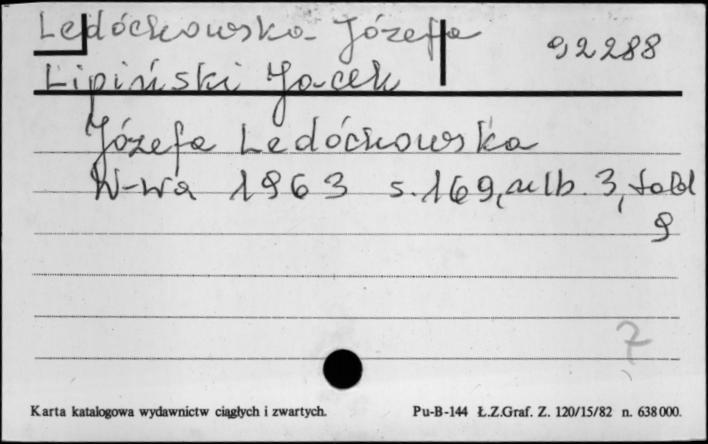 Ledóchowska Józefa
92288
Lipiński Jacek
Józefa Ledóchowska
W-wa 1963 s. 169, nlb. 3, tabl
9
7
Karta katalogowa wydawnictw ciągłych i zwartych. Pu-B-144 Ł.Z.Graf. Z. 120/15/82 n. 638000.